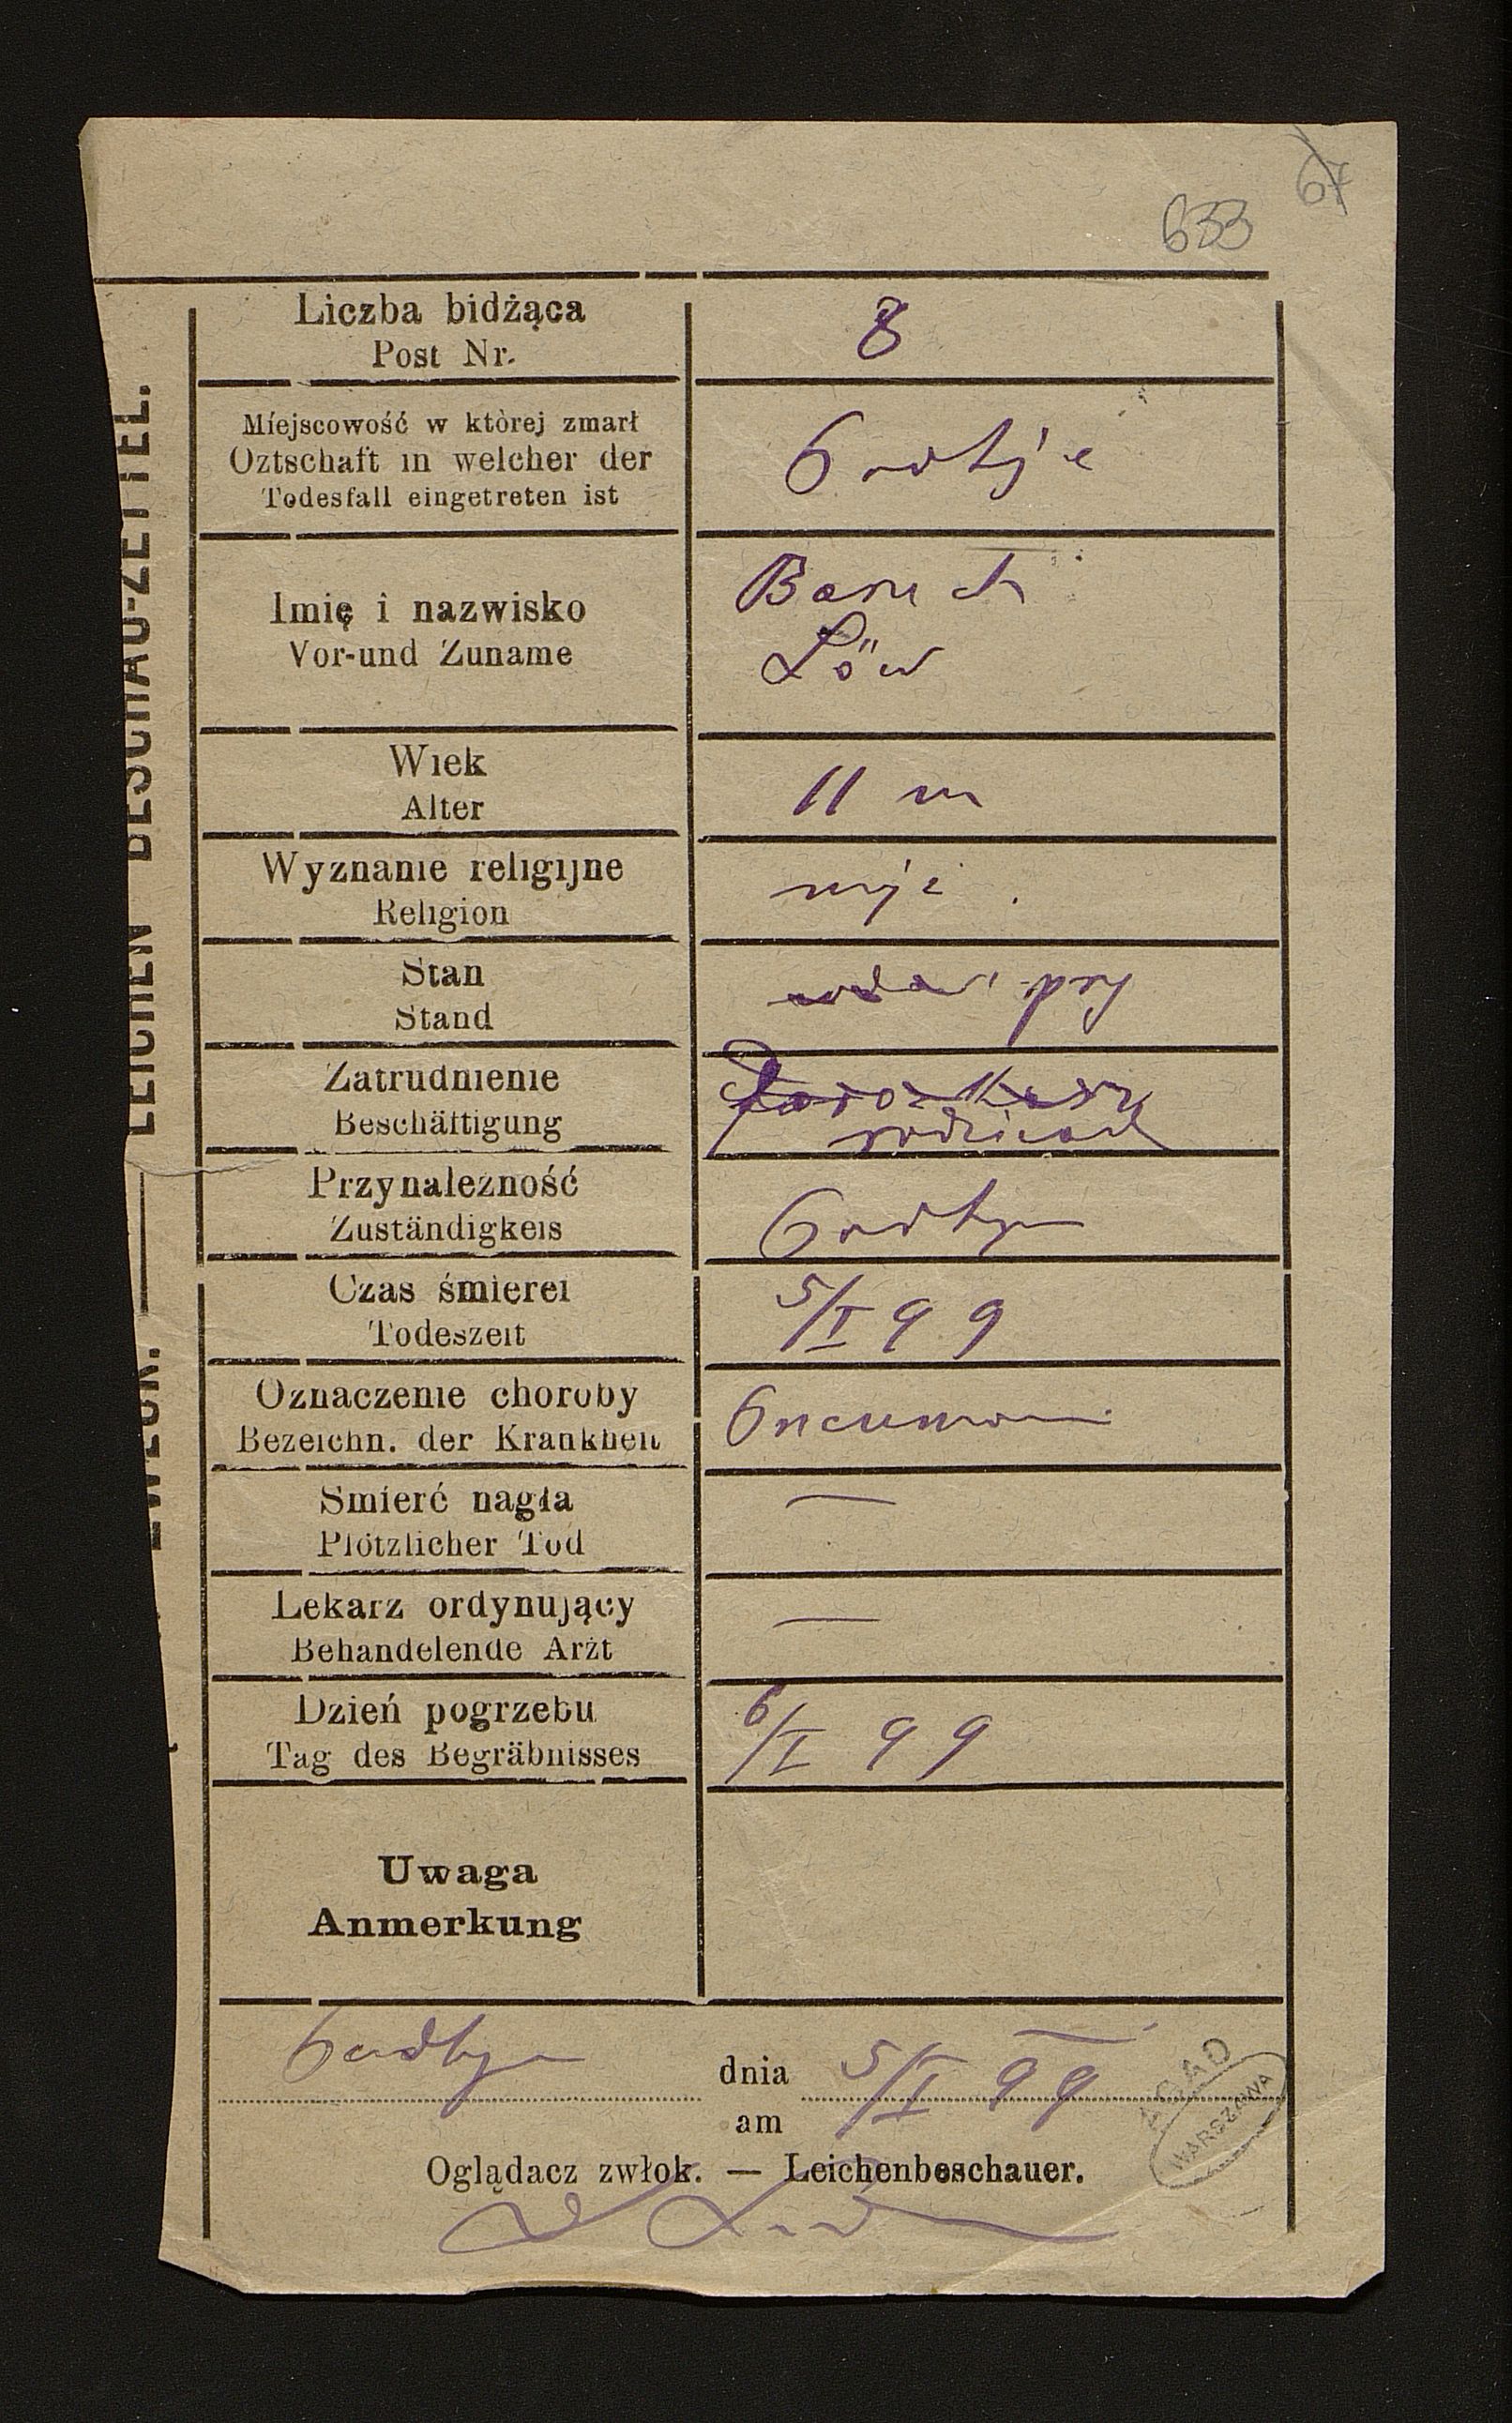 67
633
LEICHEN BESCHAU-ZETTEL.
Liczba bidżąca
Post Nr.
8
Miejscowość w której zmarł
Oztschaft in welcher der
Todesfall eingetreten ist
Imię i nazwisko
Vor-und Zuname
Baruch
Löw
Wiek
Alter
11 m
Wyznanie religijne
Religion
Stan
Stand
przy
Zatrudnienie
Beschäftigung
rodzicach
Przynależność
Zuständigkeis
Czas śmierei
Todeszeit
5/I 99
Oznaczenie choroby
Bezeichn. der Krankheit
Pneumoni
Smierć nagła
Plötzlicher Tod
—
Lekarz ordynujący
Behandelende Arzt
—
Dzień pogrzebu
Tag des Begräbnisses
6/I 99
Uwaga
Anmerkung
dnia 5/I 99
am
AGAD
WARSZAWA
Oglądacz zwłok. — Leichenbeschauer.